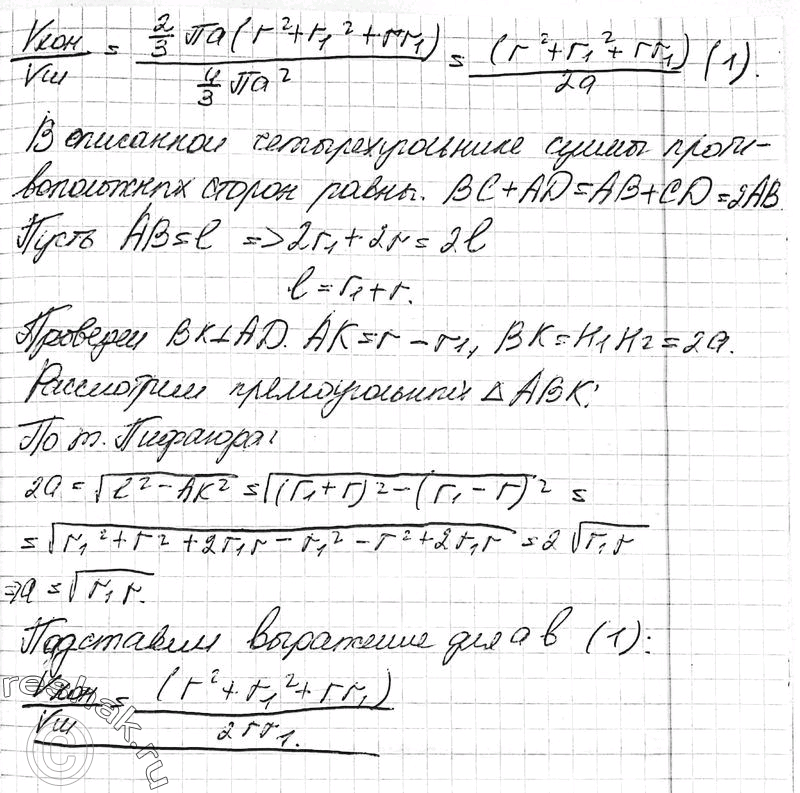 Vкон/Vш = (2/3 πa(r²+r₁²+rr₁))/(4/3 πa²) = (r²+r₁²+rr₁)/2a (1).
В описанном четырехугольнике суммы проти-
воположных сторон равны. BC+AD=AB+CD=2AB.
Пусть AB=l => 2r₁+2r=2l
l=r₁+r.
Проведем BK⊥AD. AK=r-r₁, BK=H₁H₂=2a.
Рассмотрим прямоугольный △ABK:
По т. Пифагора:
2a=√(l²-AK²)=√((r₁+r)²-(r₁-r)²) =
=√(r₁²+r²+2r₁r-r₁²-r²+2r₁r)=2√(r₁r)
=>a=√(r₁r).
Подставим выражение для a в (1):
Vкон/Vш = (r²+r₁²+rr₁)/2rr₁.
reshak.ru
©